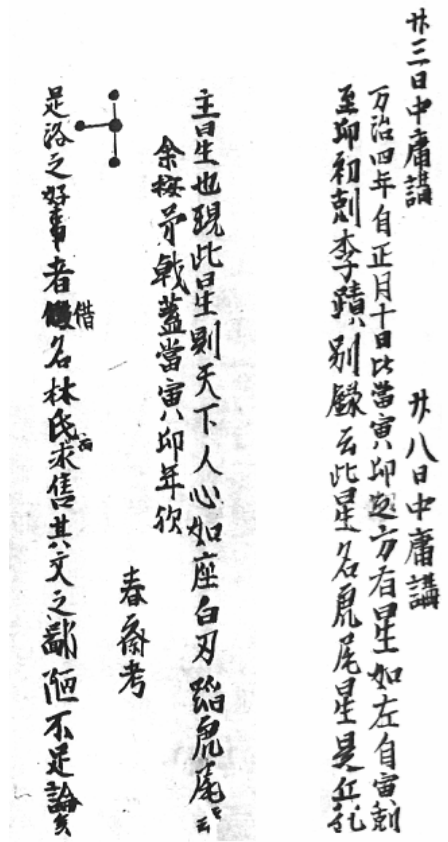 廿三日中庸講　廿八日中庸講
万治四年自正月十日比當寅卯之方有星如左自寅刻
至卯初刻李蹟別録云此星名虎尾星是兵乱
主星也現此星則天下人心如座白刃踏虎尾云云
余按矛戟蓋當寅卯年欤
春齋考
是洛之好事者借名林氏求售其文之鄙陋不足論矣